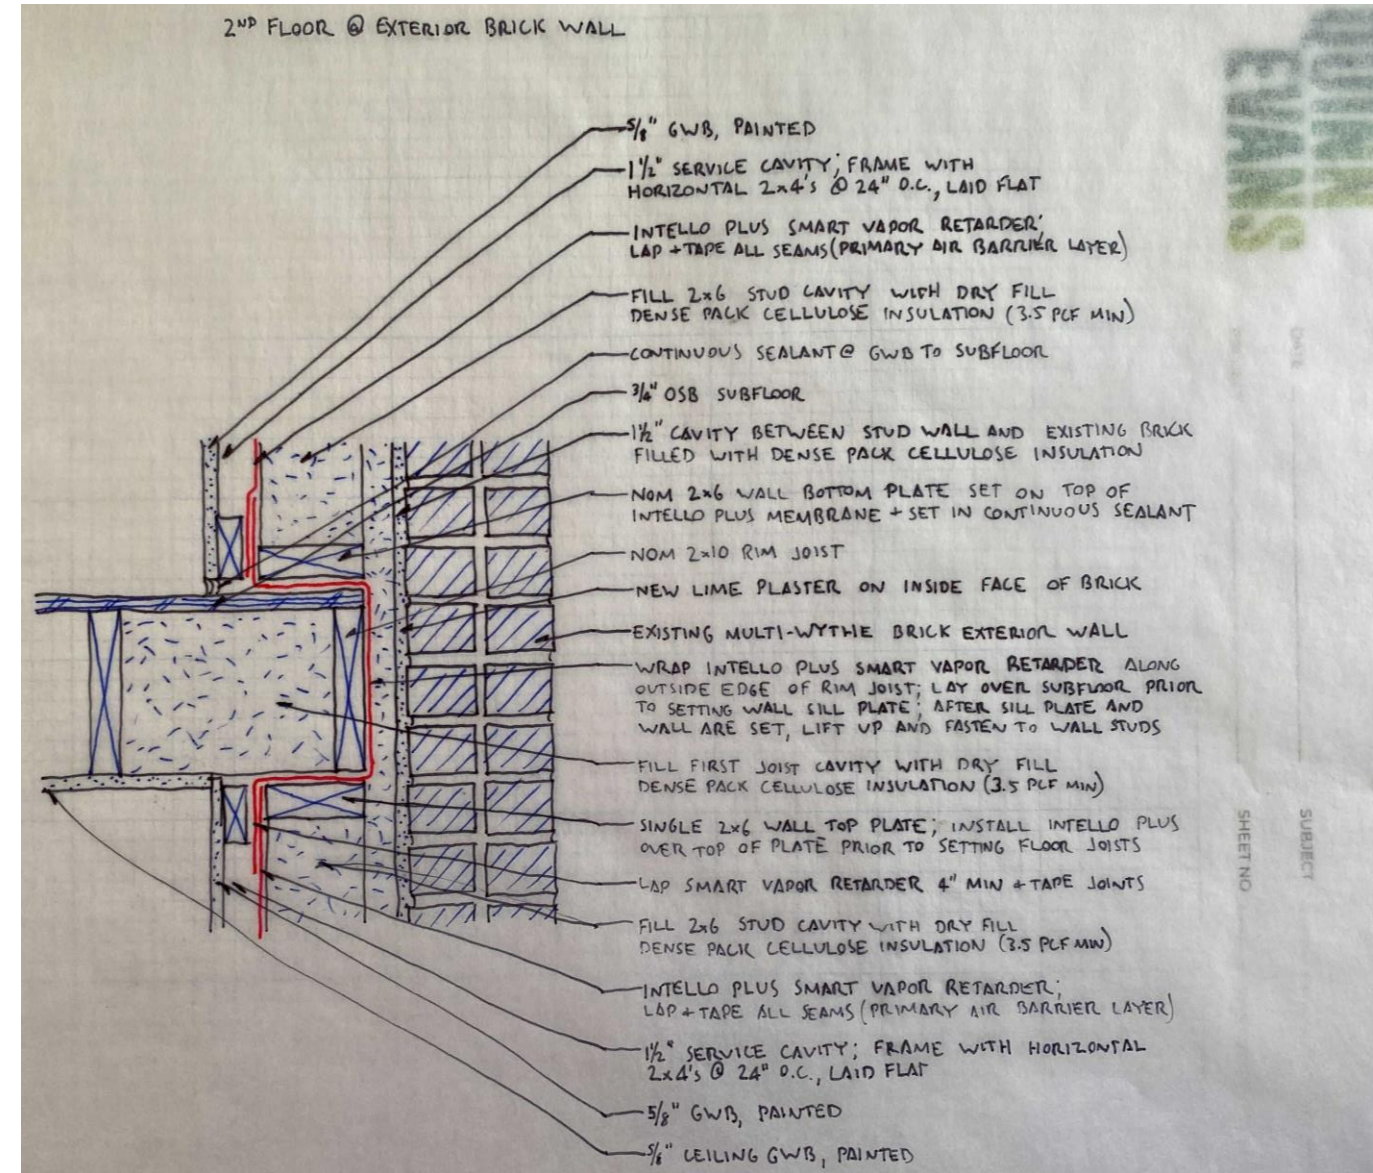 2ND FLOOR @ EXTERIOR BRICK WALL
5/8" GWB, PAINTED
1 1/2" SERVICE CAVITY; FRAME WITH
HORIZONTAL 2x4's @ 24" O.C., LAID FLAT
INTELLO PLUS SMART VAPOR RETARDER;
LAP + TAPE ALL SEAMS (PRIMARY AIR BARRIER LAYER)
FILL 2x6 STUD CAVITY WITH DRY FILL
DENSE PACK CELLULOSE INSULATION (3.5 PCF MIN)
CONTINUOUS SEALANT @ GWB TO SUBFLOOR
3/4" OSB SUBFLOOR
1 1/2" CAVITY BETWEEN STUD WALL AND EXISTING BRICK
FILLED WITH DENSE PACK CELLULOSE INSULATION
NOM 2x6 WALL BOTTOM PLATE SET ON TOP OF
INTELLO PLUS MEMBRANE + SET IN CONTINUOUS SEALANT
NOM 2x10 RIM JOIST
NEW LIME PLASTER ON INSIDE FACE OF BRICK
EXISTING MULTI-WYTHE BRICK EXTERIOR WALL
WRAP INTELLO PLUS SMART VAPOR RETARDER ALONG
OUTSIDE EDGE OF RIM JOIST; LAY OVER SUBFLOOR PRIOR
TO SETTING WALL SILL PLATE; AFTER SILL PLATE AND
WALL ARE SET, LIFT UP AND FASTEN TO WALL STUDS
FILL FIRST JOIST CAVITY WITH DRY FILL
DENSE PACK CELLULOSE INSULATION (3.5 PCF MIN)
SINGLE 2x6 WALL TOP PLATE; INSTALL INTELLO PLUS
OVER TOP OF PLATE PRIOR TO SETTING FLOOR JOISTS
LAP SMART VAPOR RETARDER 4" MIN + TAPE JOINTS
FILL 2x6 STUD CAVITY WITH DRY FILL
DENSE PACK CELLULOSE INSULATION (3.5 PCF MIN)
INTELLO PLUS SMART VAPOR RETARDER;
LAP + TAPE ALL SEAMS (PRIMARY AIR BARRIER LAYER)
1 1/2" SERVICE CAVITY; FRAME WITH HORIZONTAL
2x4's @ 24" O.C., LAID FLAT
5/8" GWB, PAINTED
5/8" CEILING GWB, PAINTED
QUINN
EVANS
DATE
SUBJECT
SHEET NO